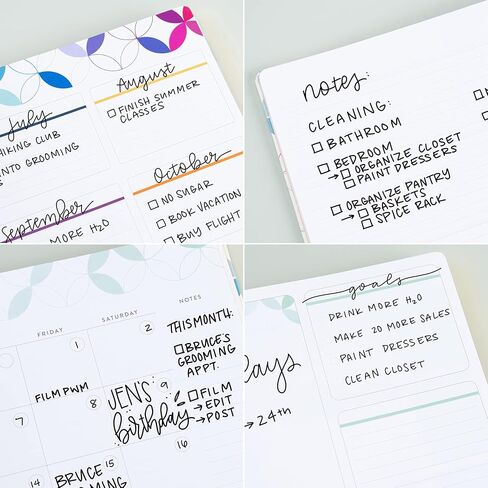 August
FINISH SUMMER
CLASSES
July
HIKING CLUB
INTO GROOMING
October
NO SUGAR
BOOK VACATION
BUY FLIGHT
September
MORE H2O
notes:
CLEANING:
BATHROOM
BEDROOM
→ ORGANIZE CLOSET
PAINT DRESSERS
ORGANIZE PANTRY
→ BASKETS
SPICE RACK
FRIDAY
SATURDAY
NOTES
1
2
THIS MONTH:
BRUCE'S
GROOMING
APPT.
FILM PWM
7
8
JEN'S
birthday
9
FILM
→ EDIT
→ POST
14
BRUCE
15
16
goals
DRINK MORE H2O
MAKE 20 MORE SALES
PAINT DRESSERS
CLEAN CLOSET
→ 24th